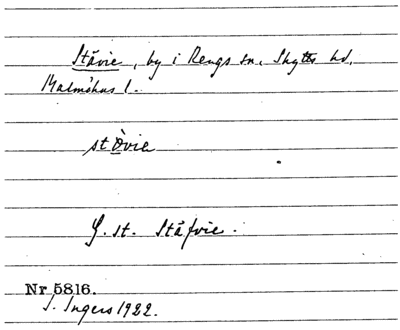 Ståvie, by i Rengs sn, Skytts hd,
Malmöhus l.
stòvie
G. st. Ståfvie.
Nr 5816.
I. Ingers 1922.